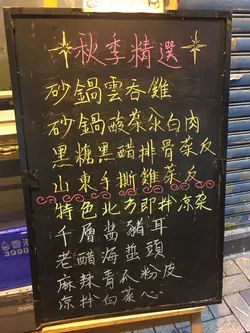 秋季精選
砂鍋雲吞雞
砂鍋酸菜汆白肉
黑糖黑醋排骨菜反
山東手撕雞菜反
特色北方即拌凉菜
千層醬豬耳
老醋海蜇頭
麻辣青瓜粉皮
凉拌白菜心
香港